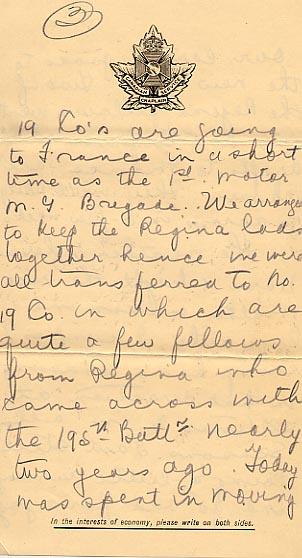 3
CANADIAN CHAPLAIN SERVICE
19 Co's are going
to France in a short
time as the 1st Motor
M. G. Brigade. We arranged
to keep the Regina lads
together hence we were
all transferred to No.
19 Co. in which are
quite a few fellows
from Regina who
came across with
the 195th Battn nearly
two years ago. Today
was spent in moving
In the interests of economy, please write on both sides.